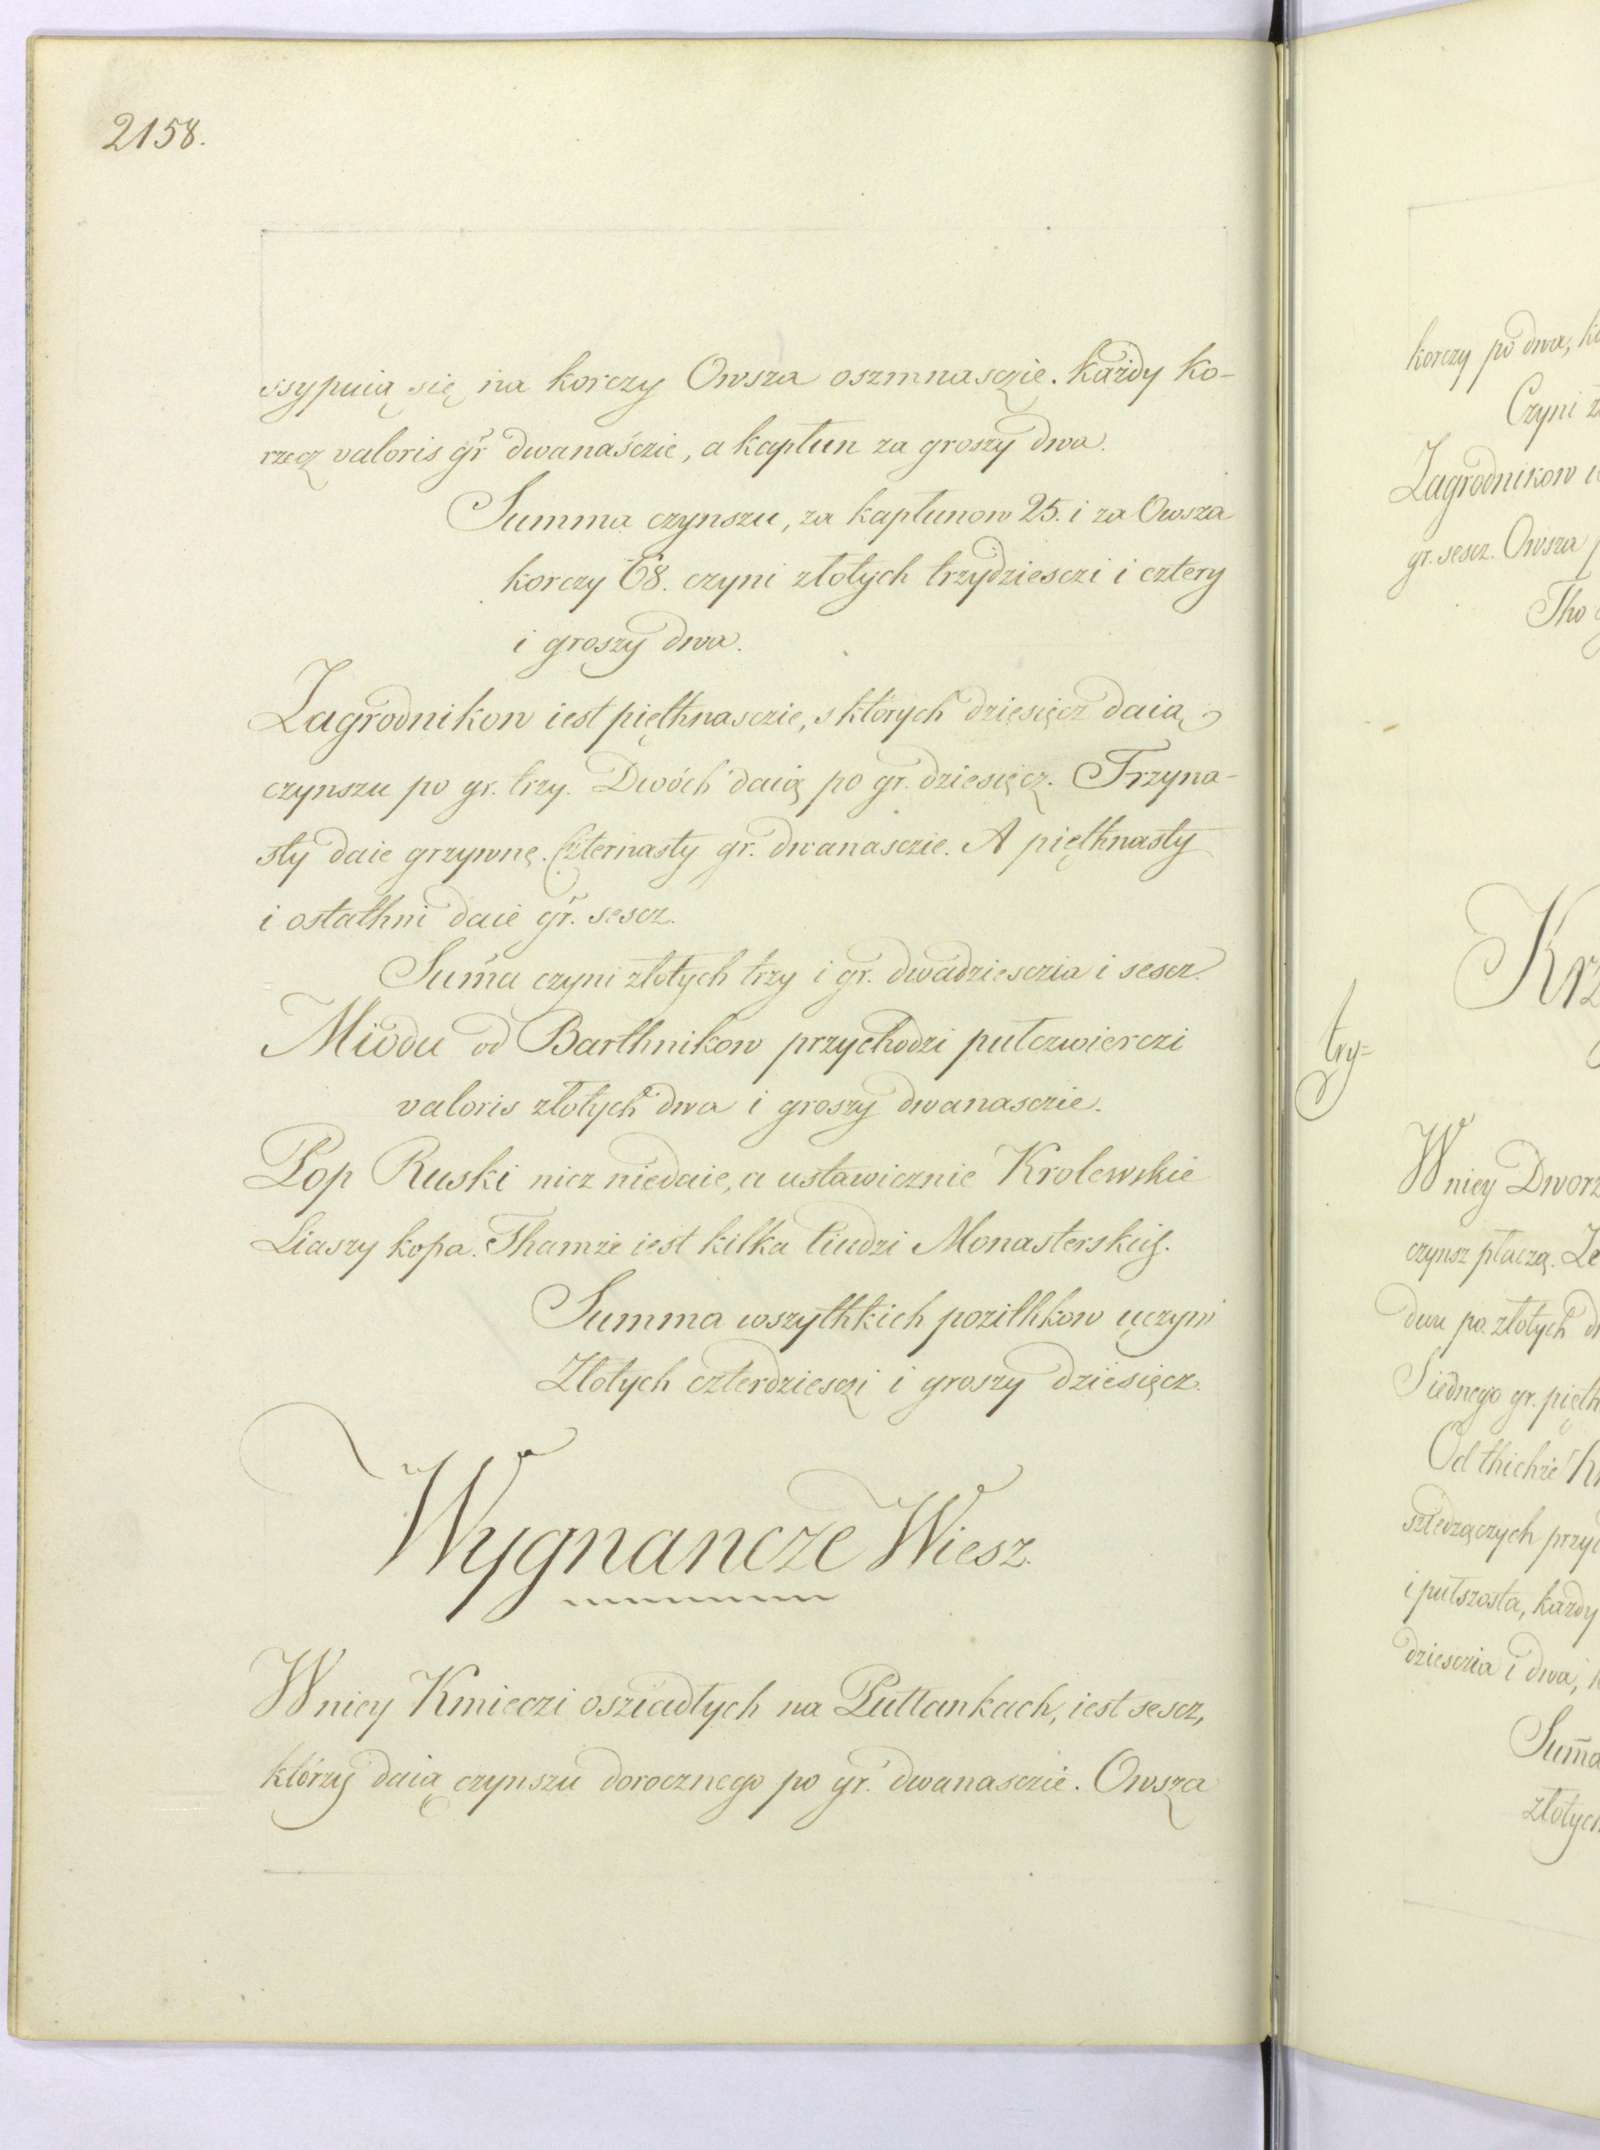 2158.
ssypuią się na korczy Owsza oszmnasczie. każdy ko-
rzecz valoris gr dwanaśczie, a kapłun za groszy dwa.
Summa czynszu, za kapłunow 25. i za Owsza
korczy 68. czyni złotych trzydziesczi i cztery
i groszy dwa.
Zagrodnikow iest pięthnasczie, s których dzięsięcz daią
czynszu po gr. trzy. Dwóch daią po gr. dziesięcz. Trzyna-
sty daie grzywnę. Czternasty gr. dwanasczie. A piętknasty
i ostathni daie gr. sescz.
Suma czyni złotych trzy i gr. dwadziesczia i sescz.
Miodu od Barthnikow przychodzi pułczwierczi
valoris złotych dwa i groszy dwanasczie.
Pop Ruski nicz niedaie, a ustawicznie Krolewskie
Liaszy kopa. Thamże iest kilka liudzi Monasterskich.
Summa wszythkich pozithkow uczyni
Złotych czterdziesczi i groszy dziesięcz.
Wygnancze Wiesz.
W niey Kmieczi osziadłych na Pułłankach, iest sescz,
którzy daią czynszu dorocznego po gr. dwanasczie. Owsza
korczy po dwa,
Czyni
Zagrodnikow
gr. sescz. Owsza
Tho
try=
W niey Dworz
czynsz płaczą.
dwu po złotych
S iednego gr. pięth
Od thichże
sziedzączych przy
i pułszosta, każdy
dziesczia i dwa,
Suma
złotych